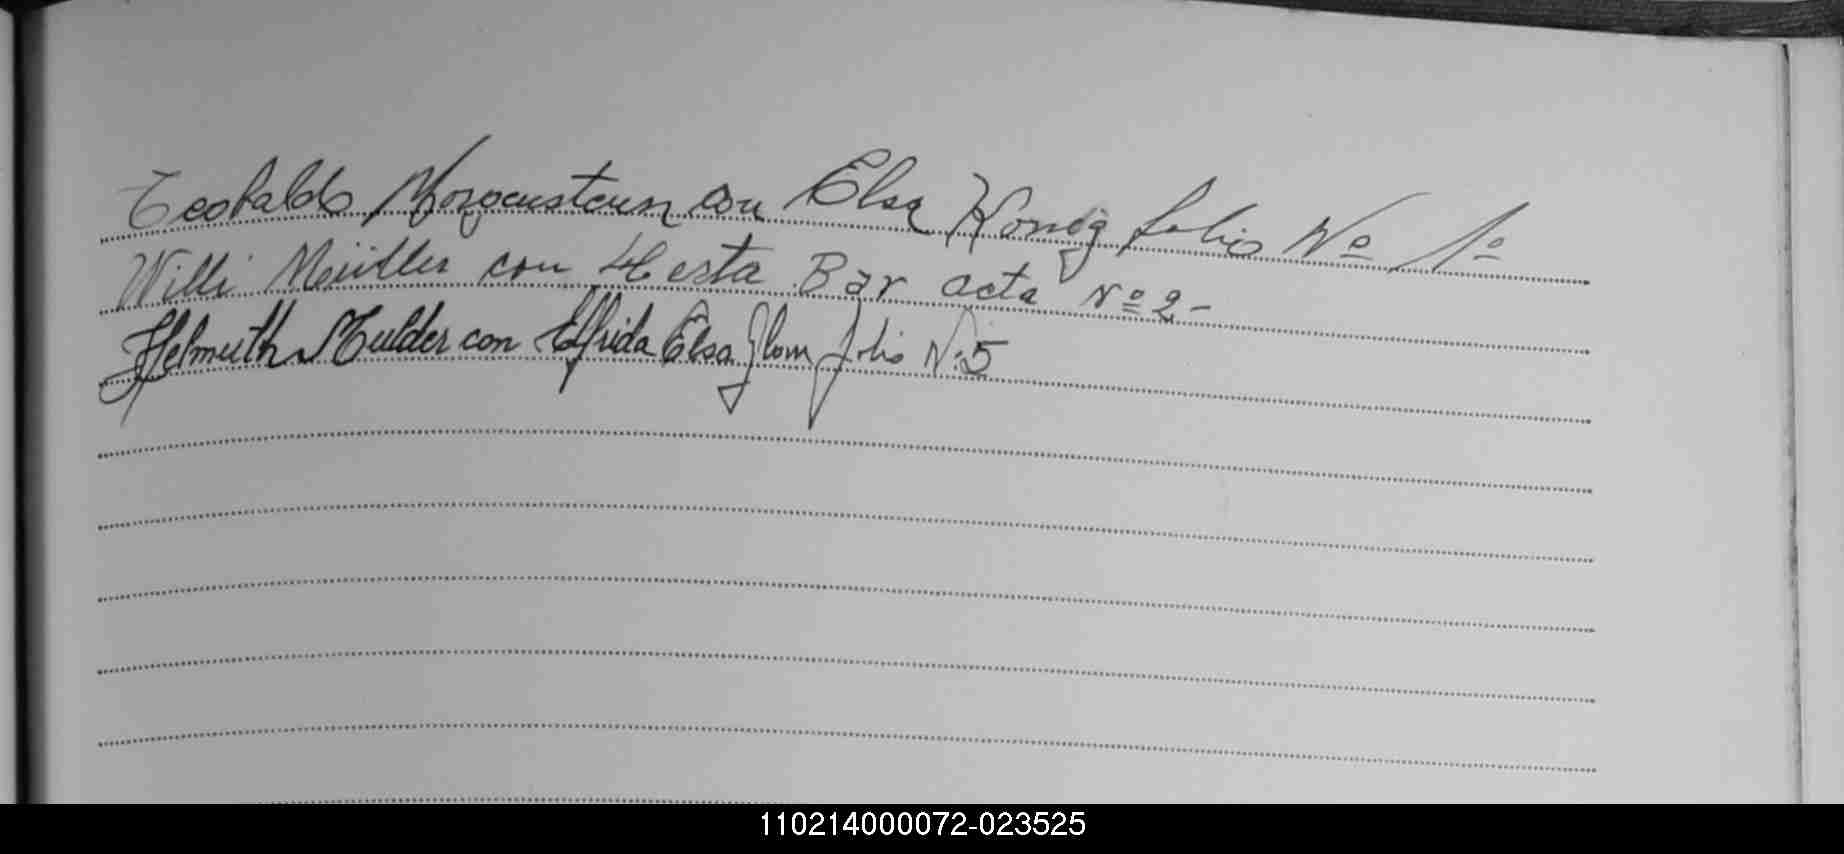 Teobaldo Morgenstern con Elsa Konig folio Nº 1º
Willi Müller con Herta Bär acta Nº 2-
Helmuth Mulder con Elfrida Elsa folio N: 5
110214000072-023525